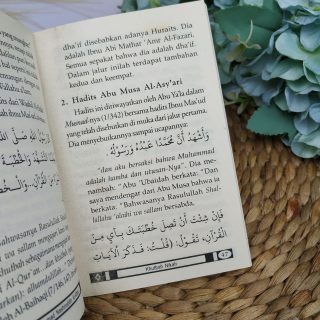 dha'if disebabkan adanya Huraits. Dia
adalah Ibnu Abi Mathar 'Amr Al-Fazari.
Semua sepakat bahwa dia adalah dha'if.
Dalam jalur inilah terdapat tambahan
kedua dan keempat.
2. Hadits Abu Musa Al-Asy'ari
Hadits ini diriwayatkan oleh Abu Ya'la dalam
Musnad-nya (1/342) bersama hadits Ibnu Mas'ud
yang telah disebutkan di muka dari jalur pertama.
Dia menyebutkannya sampai ucapannya:
وَأَشْهَدُ أَنَّ مُحَمَّدًا عَبْدُهُ وَرَسُوْلُهُ
"dan aku bersaksi bahwa Muhammad
adalah hamba dan utusan-Nya". Dia me-
nambah: "Abu 'Ubaidah berkata: "Dan
saya mendengar dari Abu Musa bahwa ia
berkata: "Bahwasanya Rasulullah Shal-
lallahu 'alaihi wa sallam bersabda,
فَإِنْ شِئْتَ أَنْ تَصِلَ خُطْبَتَكَ بِآيٍ مِنَ
الْقُرْآنِ، تَقُوْلُ: (قُلْتُ: فَذَكَرَ الْآيَاتِ
Khutbah Nikah
17